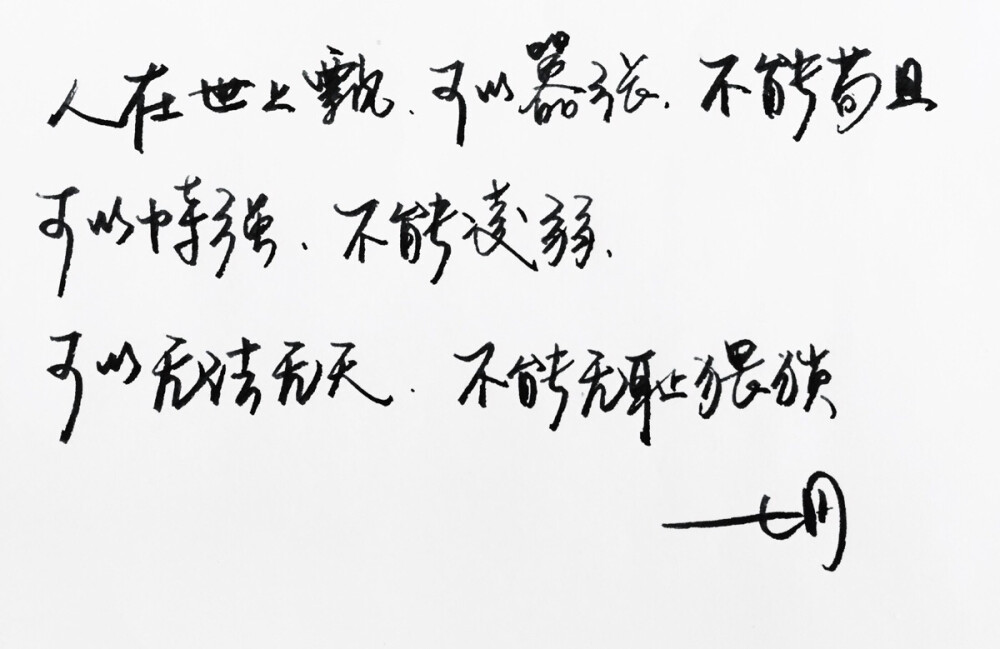 人在世上飘.可以嚣张.不能苟且
可以恃强.不能凌弱.
可以无法无天.不能无耻猥琐
一七月